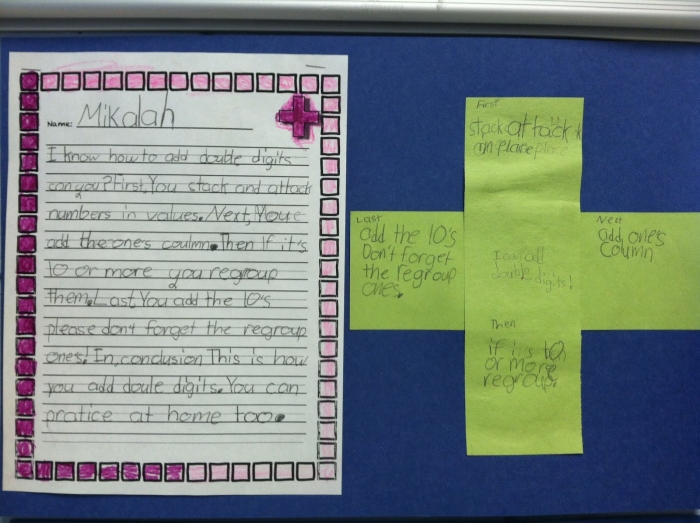 Name: Mikalah
I know how to add double digits
can you? First, You stack and attack
numbers in values. Next, You
add the one's coulmn. Then If it's
10 or more you regroup
them. Last You add the 10's
please don't forget the regroup
ones! In, conclusion This is how
you add doule digits. You can
pratice at home too.
First
stack attack
place
Last
add the 10's
Don't forget
the regroup
ones.
I can add
double digits!
Next
add one's
column
Then
if it's 10
or more
regroup.